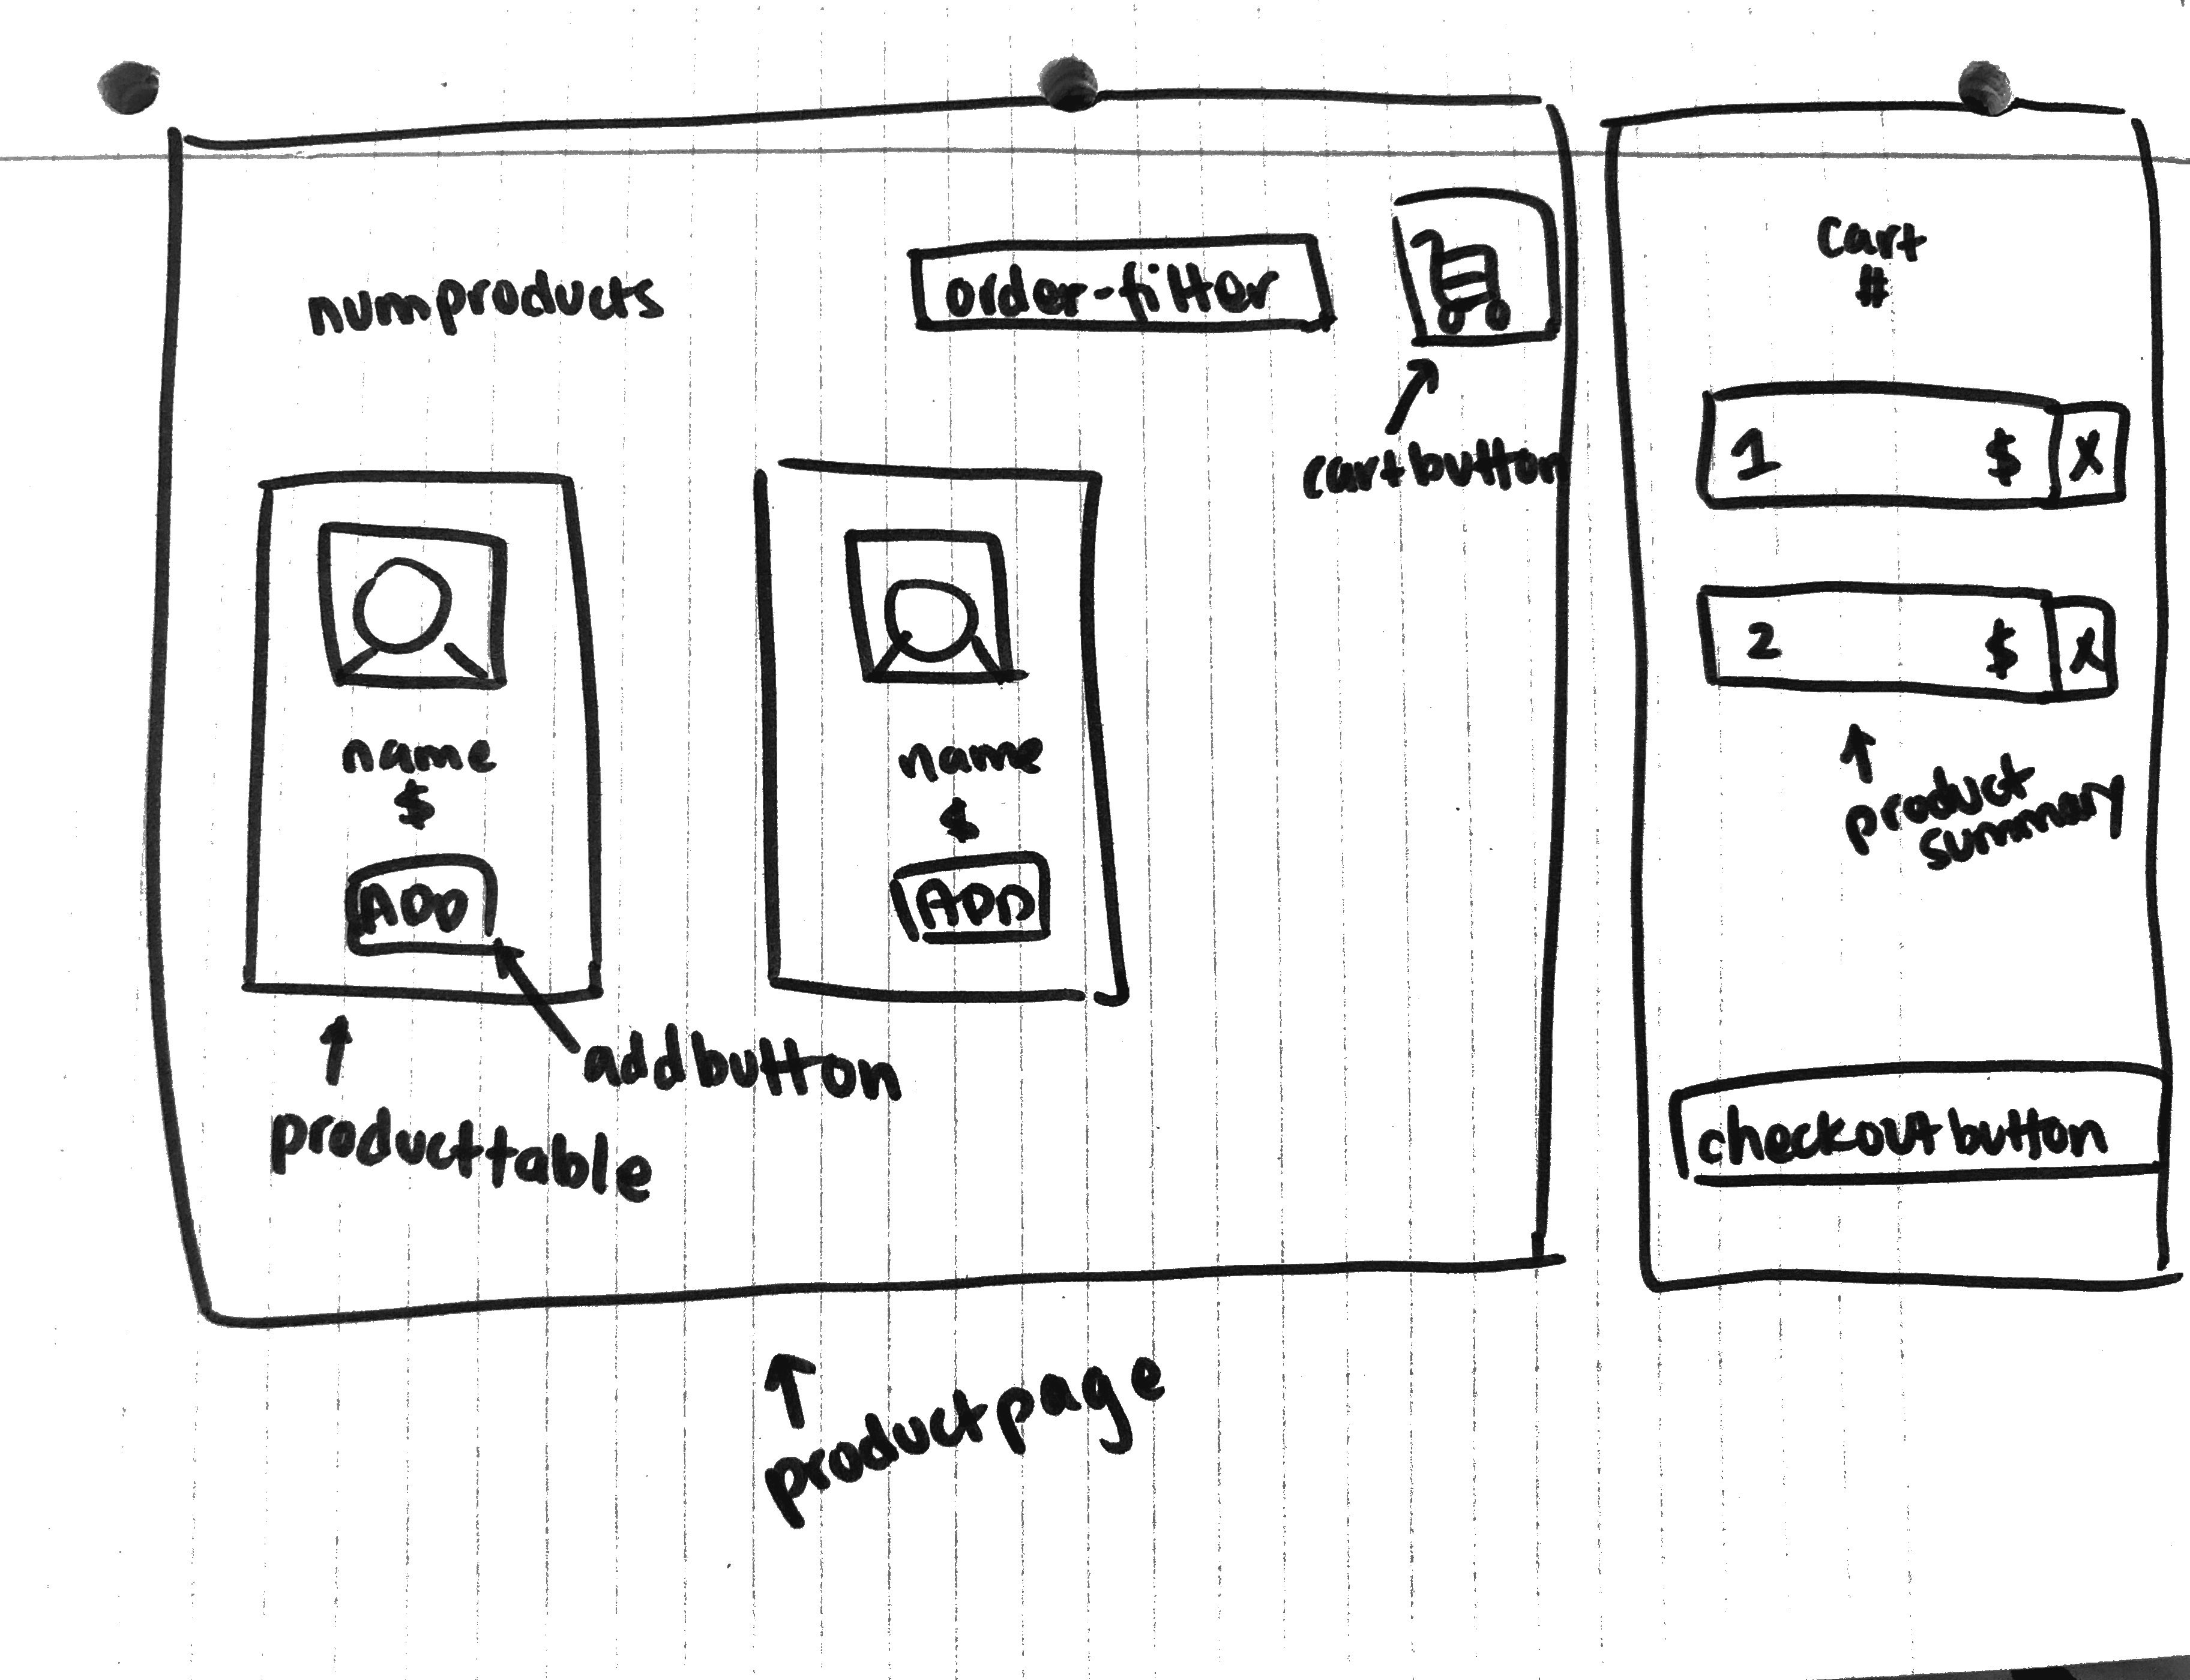 numproducts
order-filter
cartbutton
name
$
ADD
name
$
ADD
addbutton
producttable
productpage
cart
#
1 $ X
2 $ X
product
summary
checkoutbutton